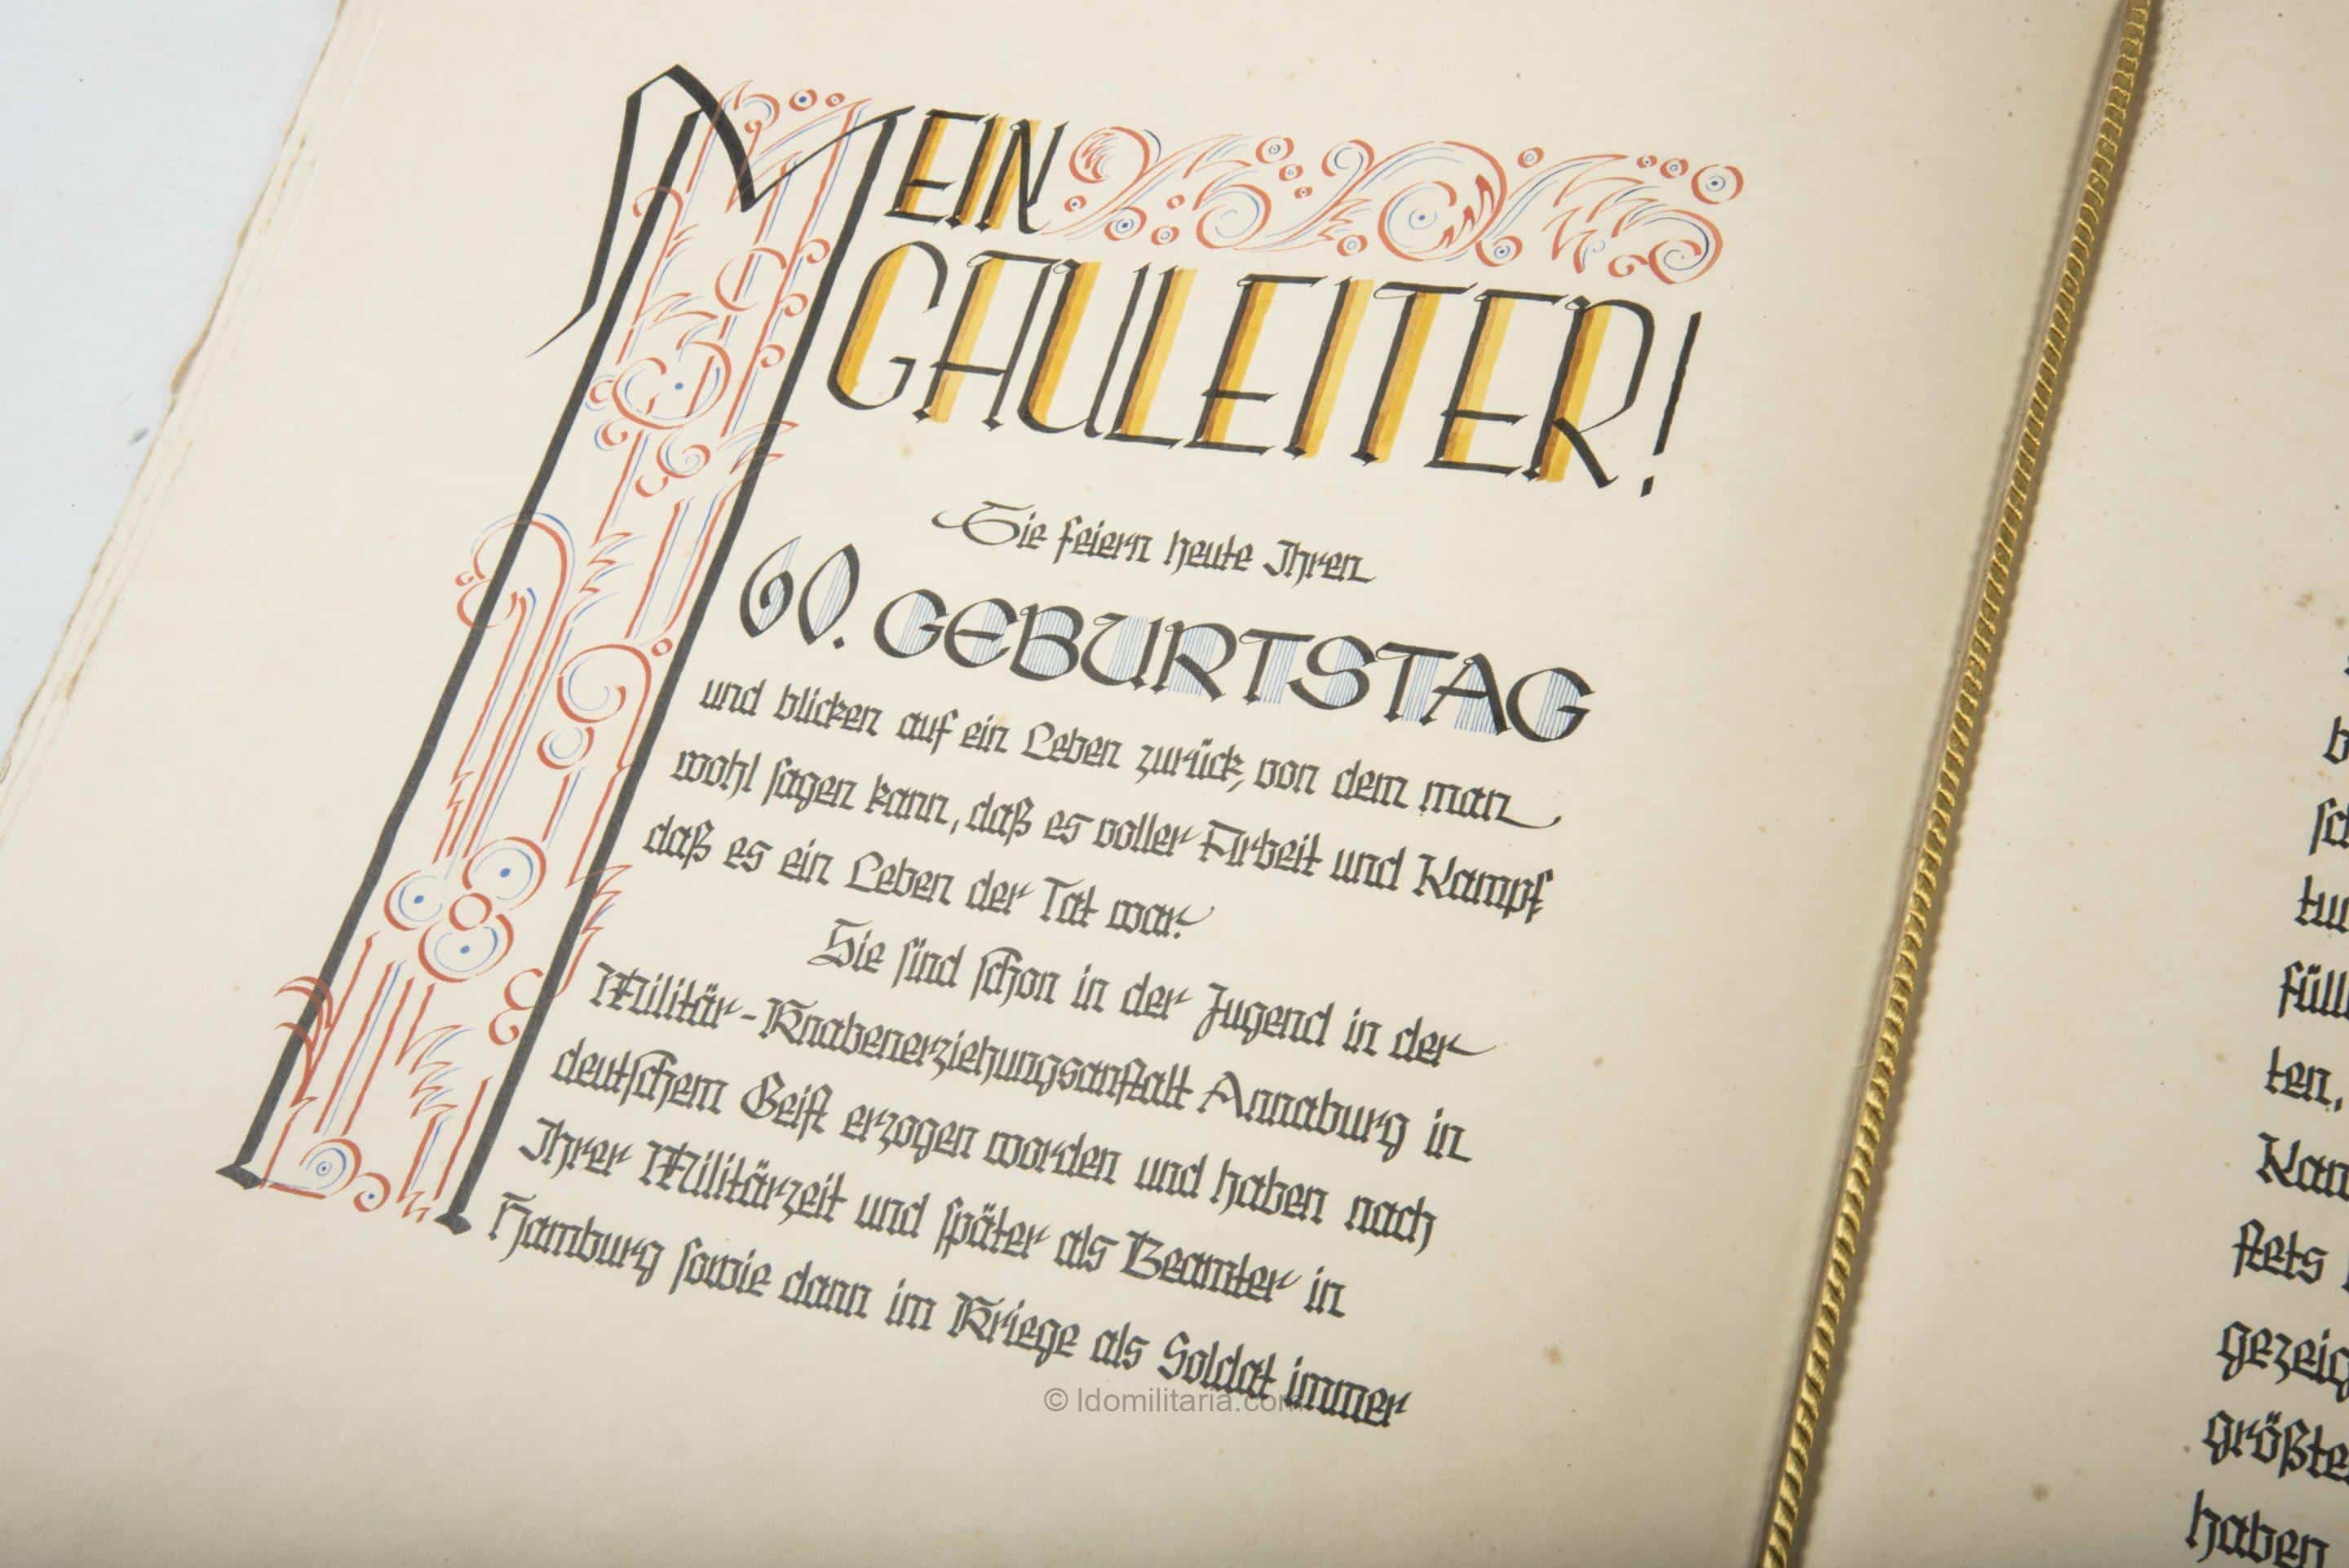 MEIN
GAULEITER!
Sie feiern heute Ihren
60. GEBURTSTAG
und blicken auf ein Leben zurück, von dem man
wohl sagen kann, daß es voller Arbeit und Kampf
daß es ein Leben der Tat war.
Sie sind schon in der Jugend in der
Militär-Knabenerziehungsanstalt Annaburg in
deutschem Geist erzogen worden und haben nach
Ihrer Militärzeit und später als Beamter in
Hamburg sowie dann im Kriege als Soldat immer
© Idomilitaria.com
ten,
stets
haben